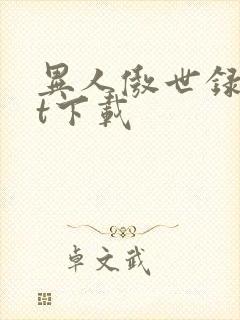 異人傲世録
t下載
卓文武